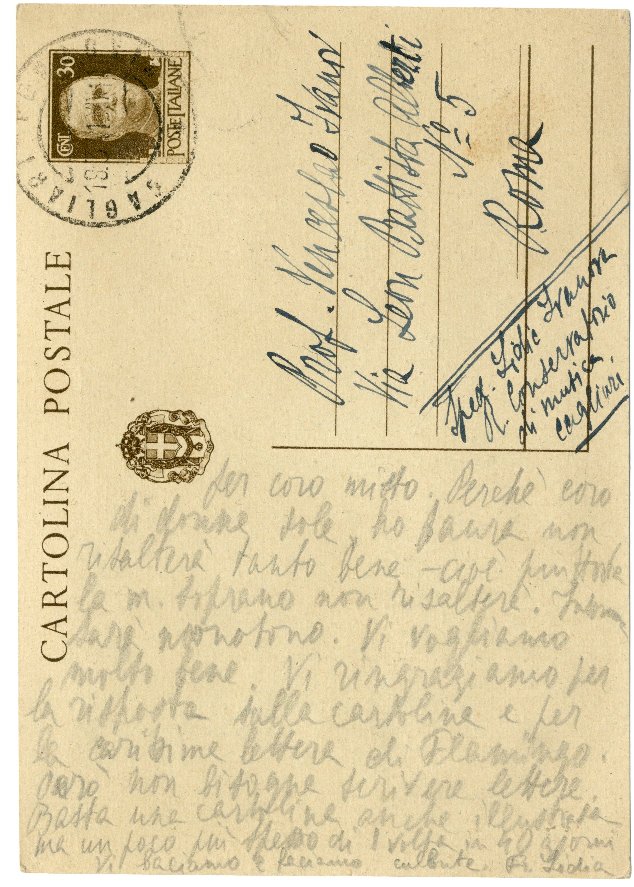 CENT 30
POSTE ITALIANE
CAGLIARI
18
CARTOLINA POSTALE
Prof. Venceslao Ivanov
Via Leon Battista Alberti
No 5
Roma
Sped. Lidia Ivanova
R. Conservatorio
di musica
Cagliari
per coro misto. Perchè coro
di donne sole ho paura non
risalterà tanto bene – cioè piuttosto
la m. soprano non risalterà.
sarà monotono. Vi vogliamo
molto bene. Vi ringraziamo per
la risposta sulla cartolina e per
la carissima lettera di Flamingo.
Però non bisogna scrivere lettere.
Basta una cartolina anche illustrata
ma un poco più spesso di 1 volta in 40 giorni
Vi baciamo e facciamo Lidia